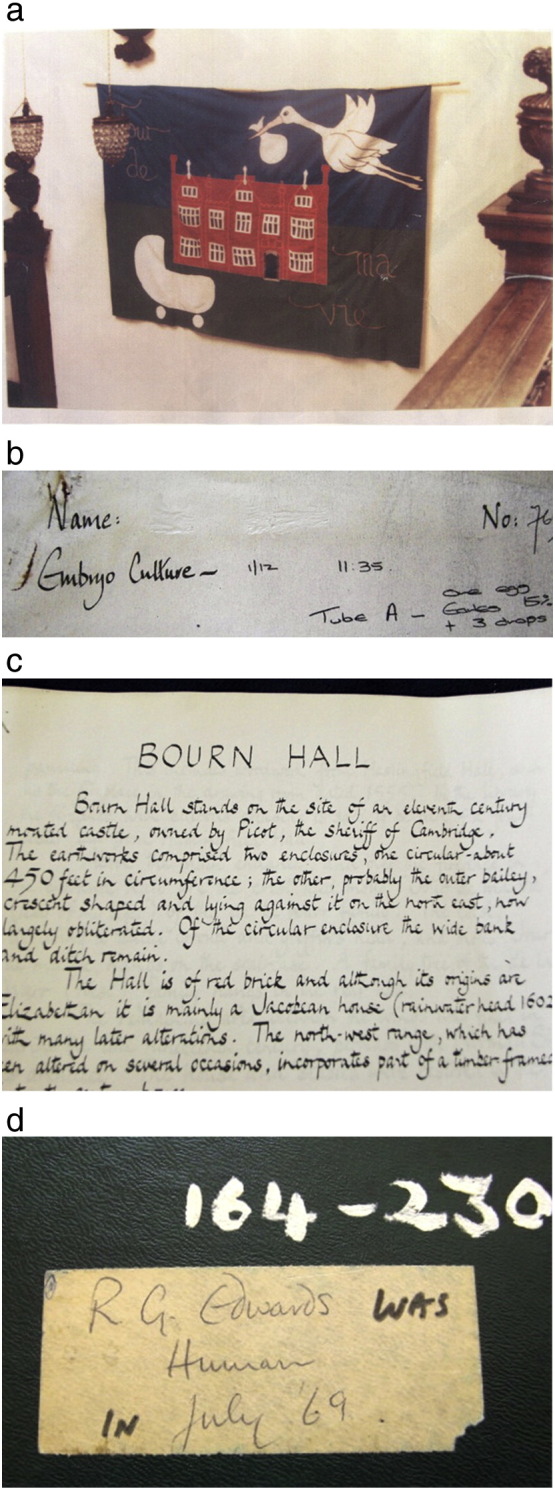 a
de
ma
vie
b
Name: No: 76
Embryo Culture – 1/12 11:35.
one egg
Tube A – Earles 15%
+ 3 drops
c
BOURN HALL
Bourn Hall stands on the site of an eleventh century
moated castle, owned by Picot, the sheriff of Cambridge.
The earthworks comprised two enclosures, one circular-about
450 feet in circumference; the other, probably the outer bailey,
crescent shaped and lying against it on the north east, now
largely obliterated. Of the circular enclosure the wide bank
and ditch remain.
The Hall is of red brick and although its origins are
Elizabethan it is mainly a Jacobean house (rainwater head 1602
ith many later alterations. The north-west range, which has
en altered on several occasions, incorporates part of a timber-framed
d
164-230
R G. Edwards WAS
Human
IN July '69.